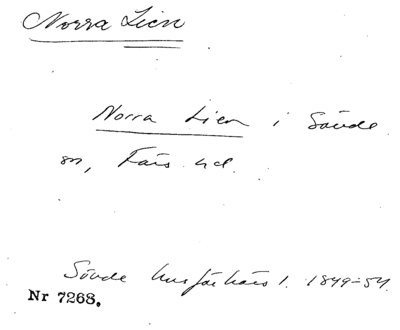 Norra Lien
Norra Lien i Sövde
sn, Färs hd.
Sövde husförhörs l. 1849-54.
Nr 7268.